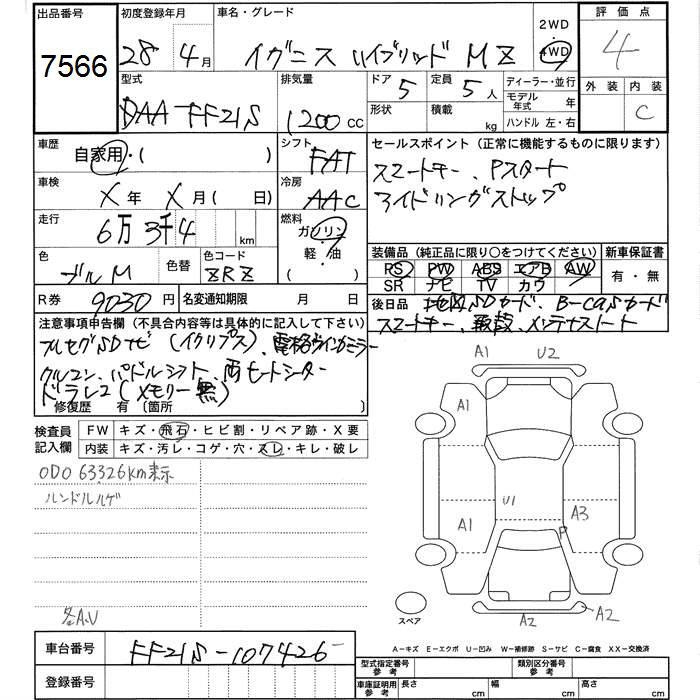 出品番号 初度登録年月 車名・グレード 2WD 評価点
7566 28年 4月 イグニス ハイブリッド MZ 4WD 4
型式 排気量 ドア 5 定員 5人 ディーラー・並行 外装 内装
DAA FF21S 1200 cc 形状 積載 kg モデル年式 年 C
ハンドル 左・右
車歴 自家用・( ) シフト FAT セールスポイント(正常に機能するものに限ります)
車検 X年 X月( 日) 冷房 AAC スマートキー、Pスタート
アイドリングストップ
走行 6万3千4 km 燃料 ガソリン・軽・油( )
色 ブルM 色替 色コード ZRZ 装備品(純正品に限り〇をつけてください) 新車保証書
PS PW ABS エアB AW 有・無
SR ナビ TV カワ
R券 9030円 名変通知期限 月 日 後日品 地図SDカード、B-CASカード
スマートキー、取説、メンテナスノート
注意事項申告欄(不具合内容等は具体的に記入して下さい)
フルセグSDナビ(イクリプス)、電格ウインカミラー
クルコン、パドルシフト、両ヒートシーター
ドラレコ(メモリー無)
修復歴 有(箇所 )
検査員記入欄 FW キズ・飛石・ヒビ割・リペア跡・X要
内装 キズ・汚レ・コゲ・穴・スレ・キレ・破レ
ODO 63326km表示
ルンドルルゲ
各A.U
A1 U2
A1
U1
A1 A3
P
スペア A2 A2
A-キズ E-エクボ U-凹み W-補修跡 S-サビ C-腐食 XX-交換済
車台番号 FF21S-107426
登録番号
型式指定番号 参考 類別区分番号 参考
車庫証明用 参考 長さ cm 幅 cm 高さ cm